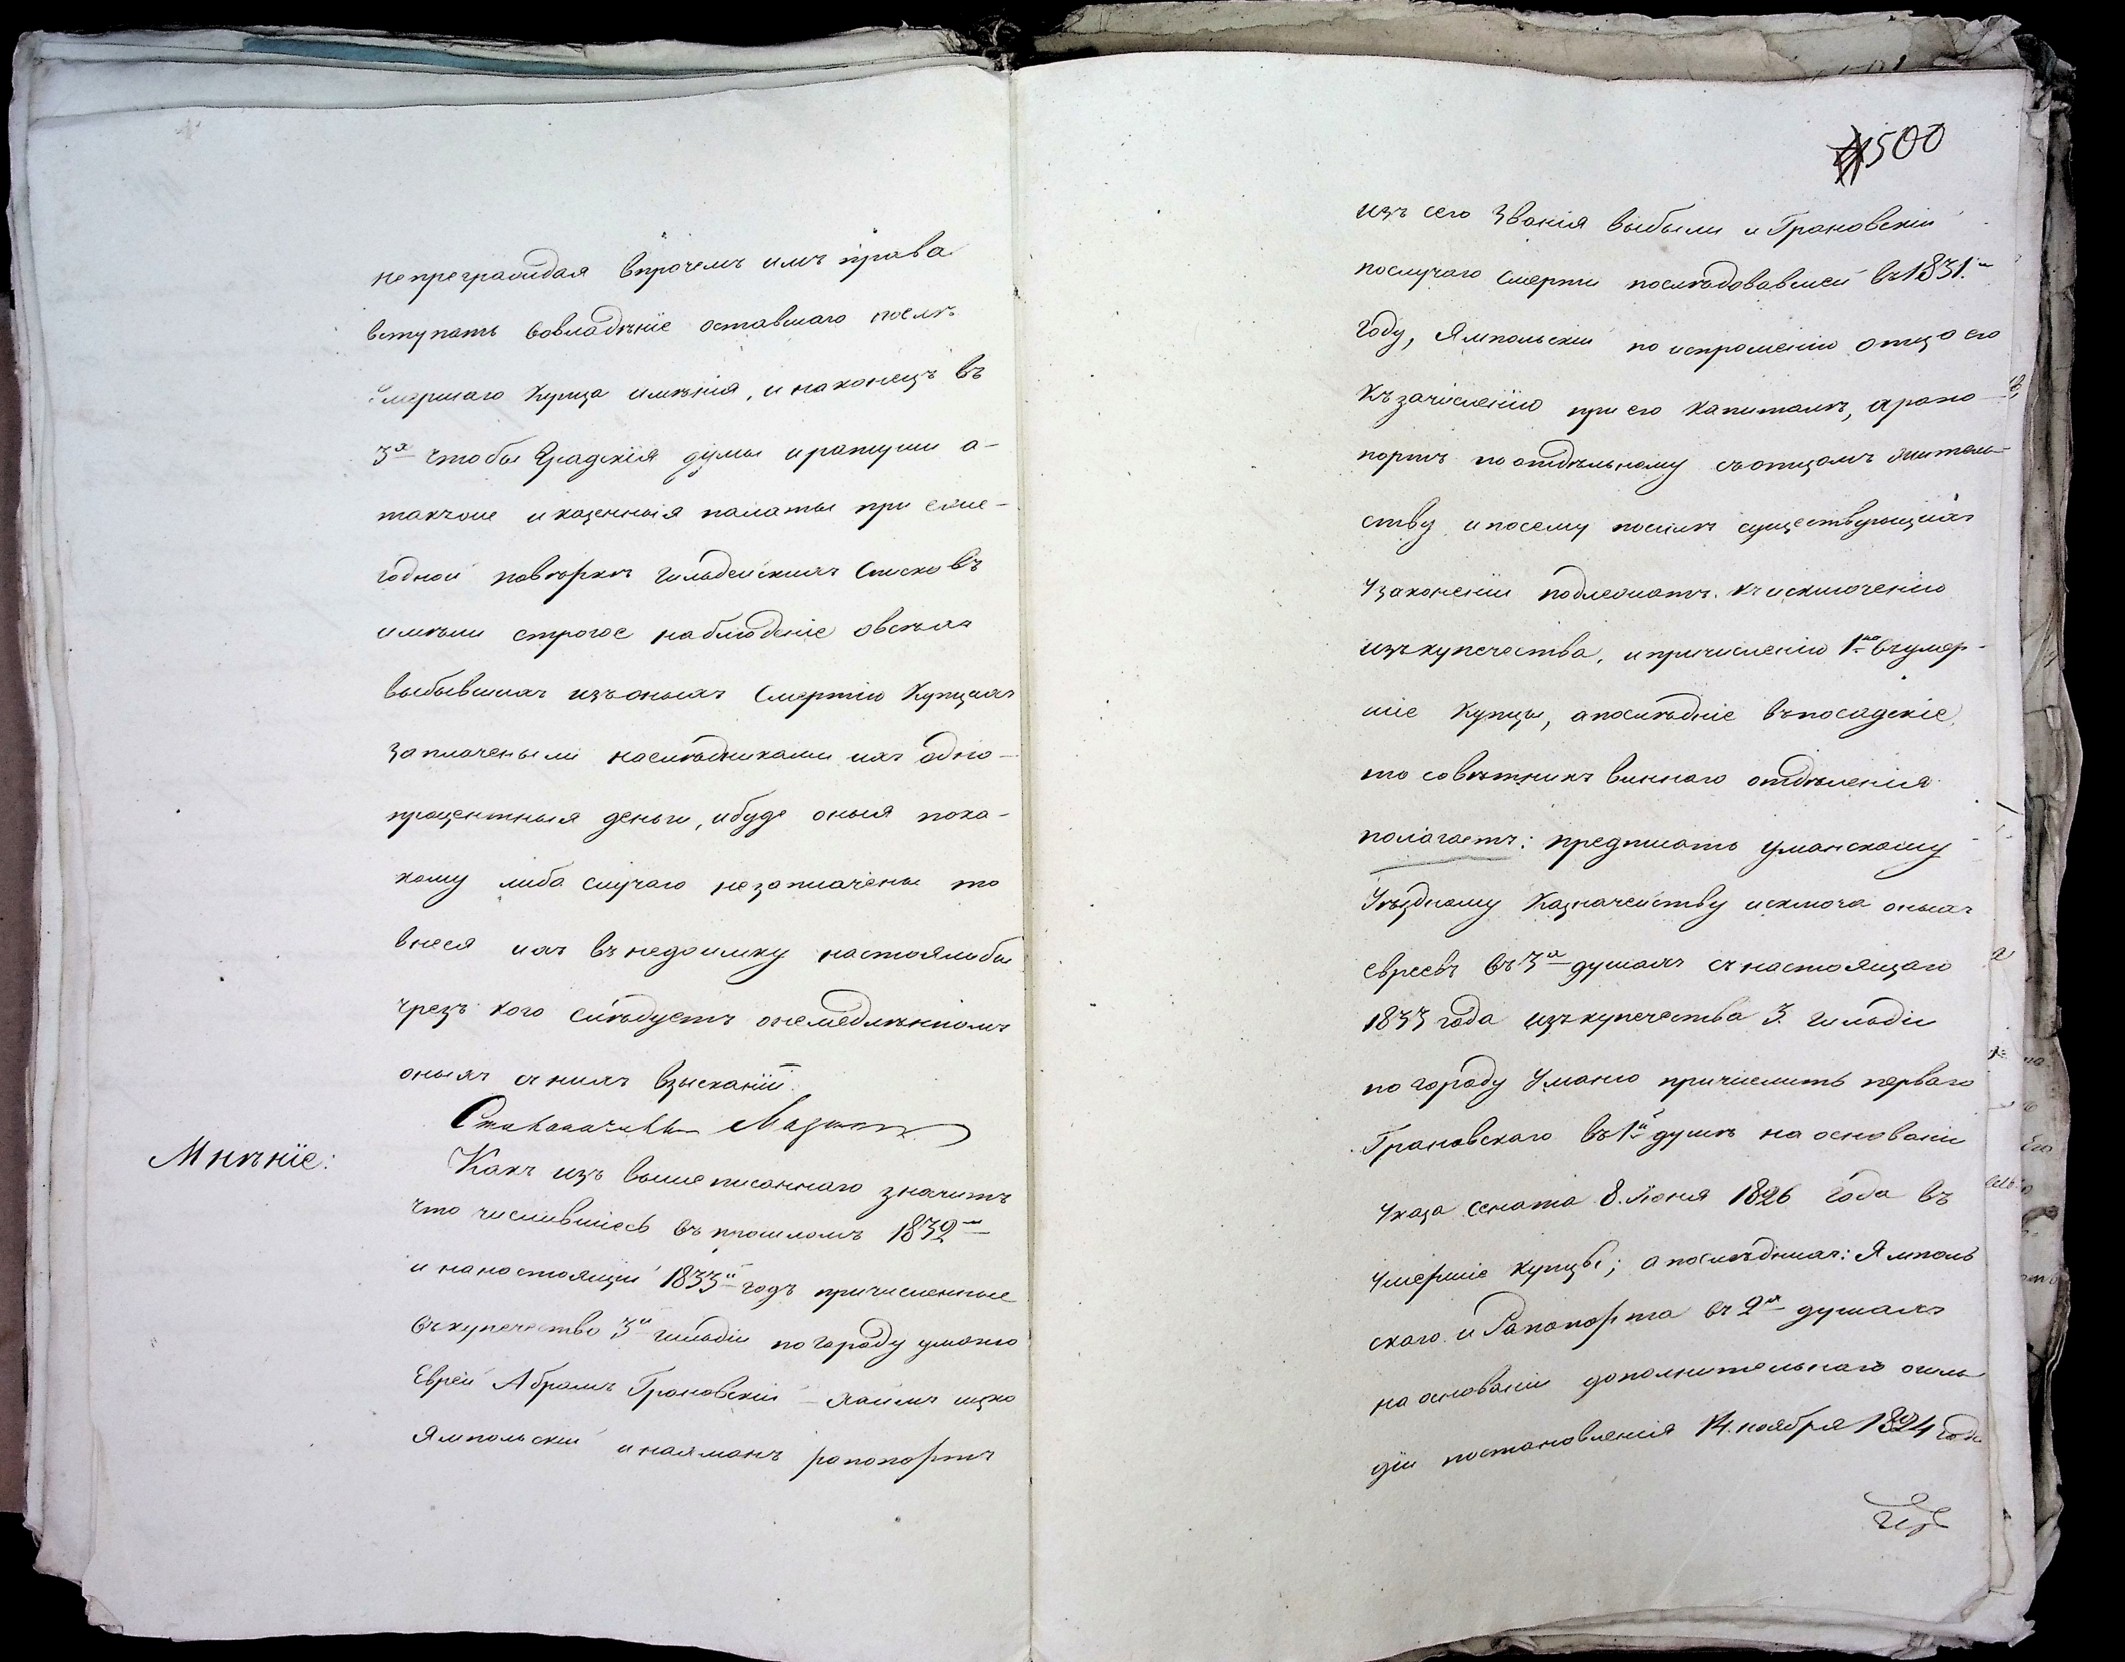 непреграждая впрочемъ имъ права
вступать вовладѣніе оставшаго послѣ
умершаго Купца имѣнія, и наконецъ въ
3х чтобы Градскія думы и ратуши а-
такъже и казенныя палаты при еже-
годной повѣркѣ гильдейскихъ Списковъ
имѣли строгое наблюденіе овсѣхъ
выбывшихъ изъ оныхъ Смертію Купцахъ
заплачены ли наслѣдниками ихъ одно-
процентныя деньги, ибуде оныя пока-
кому либо случаю незаплачены то
внеся ихъ въ недоимку настоялибы
чрезъ кого слѣдуетъ онемедлѣнномъ
оныхъ съ нихъ взысканіи.
Мнѣніе:
Какъ изъ вышеписаннаго значитъ
что числившіесь въ прошломъ 1832м
и на настоящій 1833й годъ причисленные
въ купечество 3й гильдіи по городу уманю
Евреи Абрамъ Грановскій Хаимъ ицко
Ямпольскій и нахманъ рапопортъ
500
изъ сего Званія выбыли и Грановскій
послучаю смерти послѣдовавшей въ 1831м
году, Ямпольскій по испрошенію отца его
Къ зачисленію при его капиталѣ, арапо-
портъ по отдѣльному съ отцомъ житель-
ству, и посему посилѣ существующихъ
Узаконеній подлежатъ къ исключенію
изъ купечества, и причисленію 1го въ умер-
шіе купцы, а послѣдніе въ посадскіе,
то совѣтникъ виннаго отдѣленія
полагаетъ: предписать уманскому
Уѣздному Казначейству исключа оныхъ
евреевъ въ 3х душахъ съ настоящаго
1833 года изъ купечества 3. гильдіи
по городу Уманю причислить перваго
Грановскаго въ 1й душѣ на основаніи
Указа сената 8. Іюня 1826 года въ
умершіе купцы; а послѣднихъ: Ямполь
скаго и Рапопорта въ 2х душахъ
на основаніи дополнительнаго о гиль
діи постановленія 14. ноября 1824 года